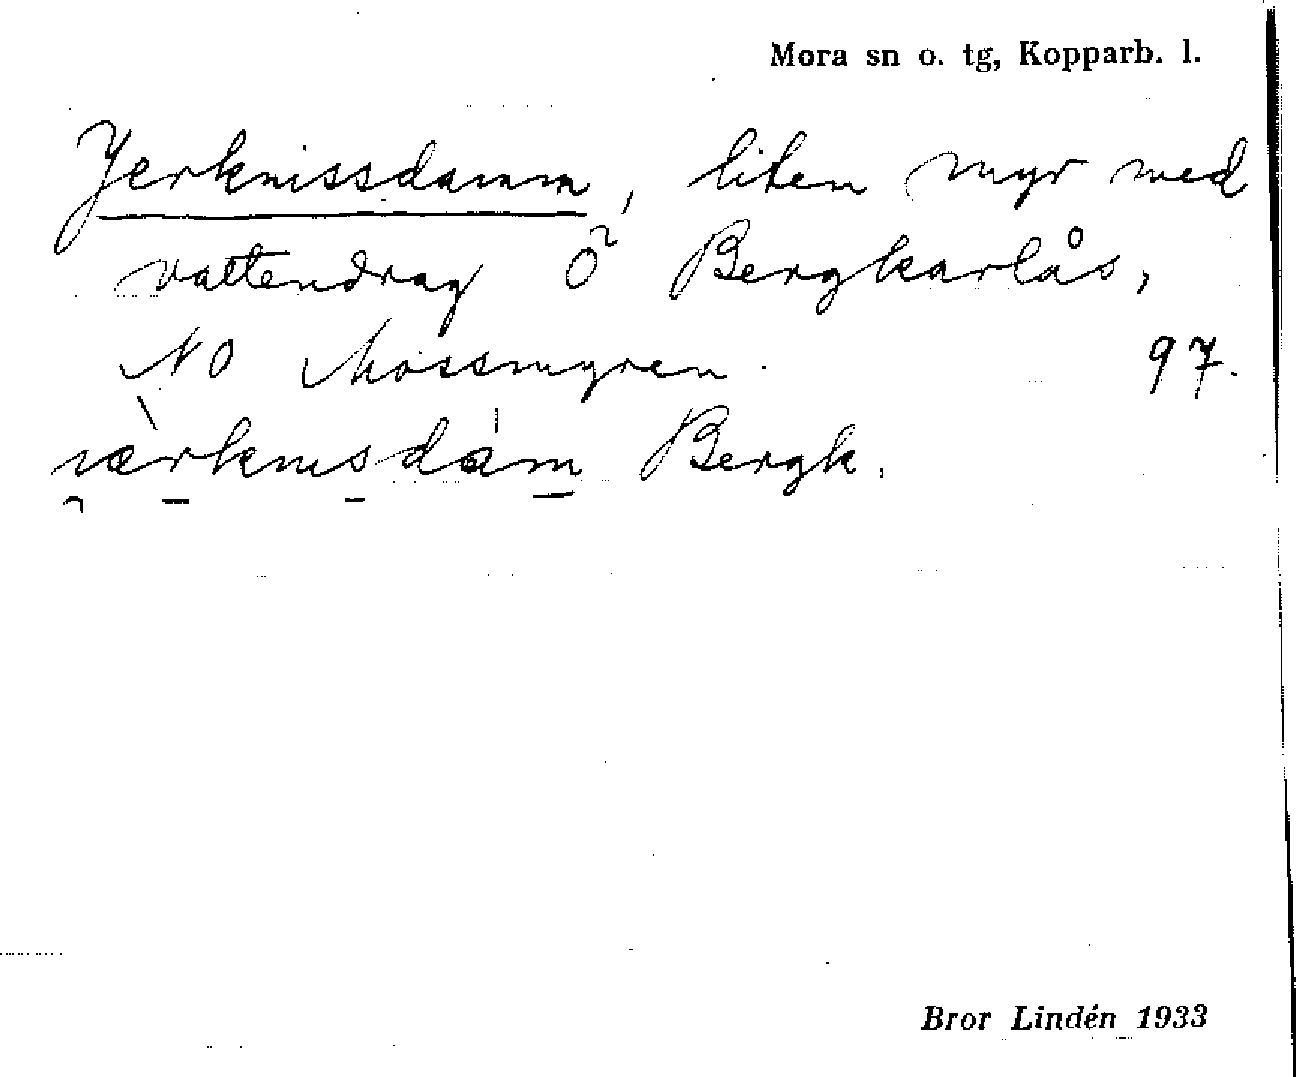 Mora sn o. tg, Kopparb. l.
Jerknissdamm, liten myr med
vattendrag Ö Bergkarlås,
NO Mossmyren. 97.
Bergk.
Bror Lindén 1933